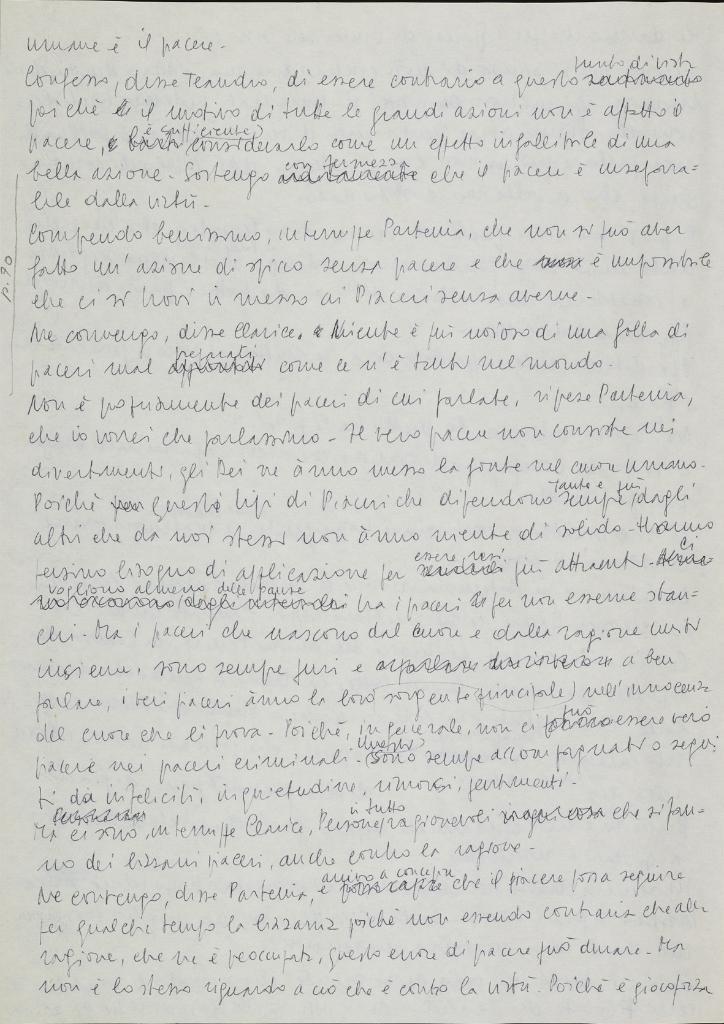 umane è il piacere -
punto di vista
Confesso, disse Teandro, di essere contrario a questo
poiché il motivo di tutte le grandi azioni non è affatto il
è sufficiente
piacere, considerarlo come un effetto infallibile di una
con fermezza
bella azione - Sostengo che il piacere è insepara-
bile dalla virtù -
Comprendo benissimo, interruppe Partenia, che non si può aver
p. 90
fatto un'azione di spicco senza piacere e che è impossibile
che ci si trovi in mezzo ai Piaceri senza averne -
Ne convengo, disse Clarice. Niente è più noioso di una folla di
preparati
piaceri mal come ce n'è tanti nel mondo.
Non è propriamente dei piaceri di cui parlate, riprese Partenia,
che io vorrei che parlassimo - Il vero piacere non consiste nei
divertimenti, gli Dei ne ànno messo la fonte nel cuore umano.
Poiché questi tipi di Piaceri che dipendono sempre dagli
altri che da noi stessi non ànno niente di solido - Hanno
essere resi
persino bisogno di applicazione per più attraenti - ci
vogliono almeno delle pause
tra i piaceri per non esserne stan-
chi - Ma i piaceri che nascono dal cuore e dalla ragione uniti
insieme, sono sempre puri e a ben
parlare, i veri piaceri ànno la loro sorgente (principale) nell'innocenza
del cuore che li prova - Poiché, in generale, non ci può essere vero
questi
piacere nei piaceri criminali - Sono sempre accompagnati o segui-
ti da infelicità, inquietudine, rimorsi, pentimenti -
in tutto
Ma ci sono, interruppe Clarice, Persone ragionevoli che si fan-
no dei bizzarri piaceri, anche contro la ragione -
arrivo a concepire
Ne convengo, disse Partenia, e che il piacere possa seguire
per qualche tempo la bizzarria poiché non essendo contraria che alla
ragione, che ne è preoccupata, questo errore di piacere può durare - Ma
non è lo stesso riguardo a ciò che è contro la virtù - Poiché è giocoforza